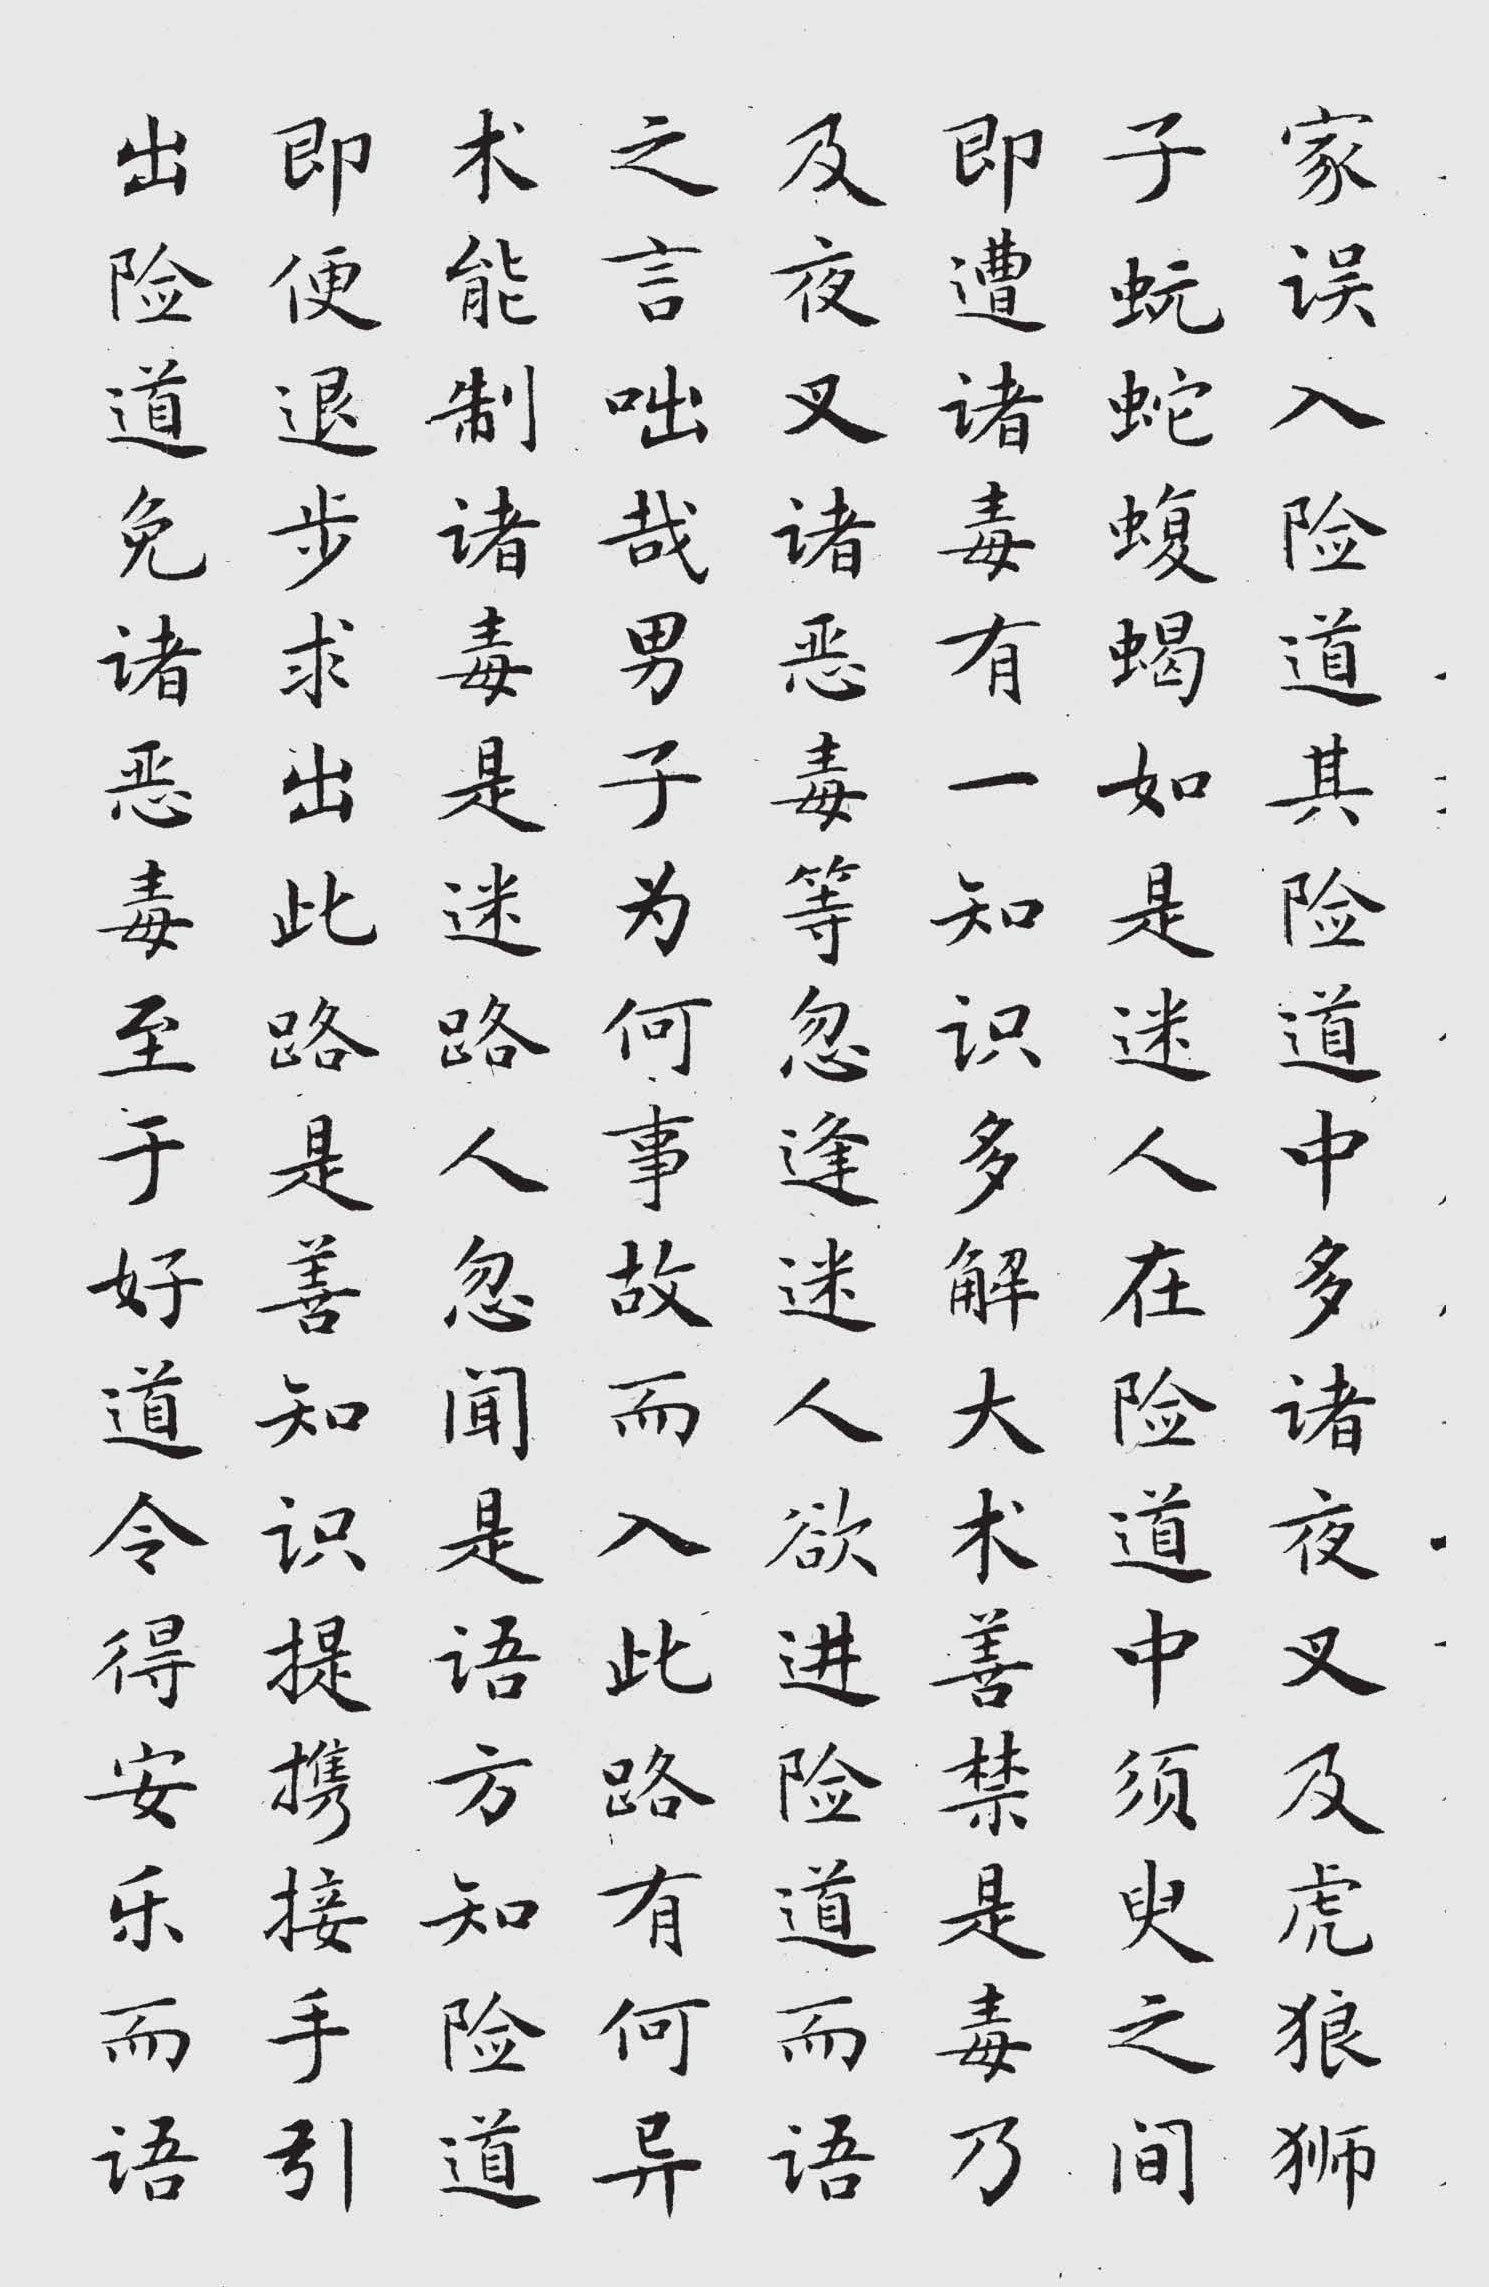 家误入险道其险道中多诸夜叉及虎狼狮
子蚖蛇蝮蝎如是迷人在险道中须臾之间
即遭诸毒有一知识多解大术善禁是毒乃
及夜叉诸恶毒等忽逢迷人欲进险道而语
之言咄哉男子为何事故而入此路有何异
术能制诸毒是迷路人忽闻是语方知险道
即便退步求出此路是善知识提携接手引
出险道免诸恶毒至于好道令得安乐而语